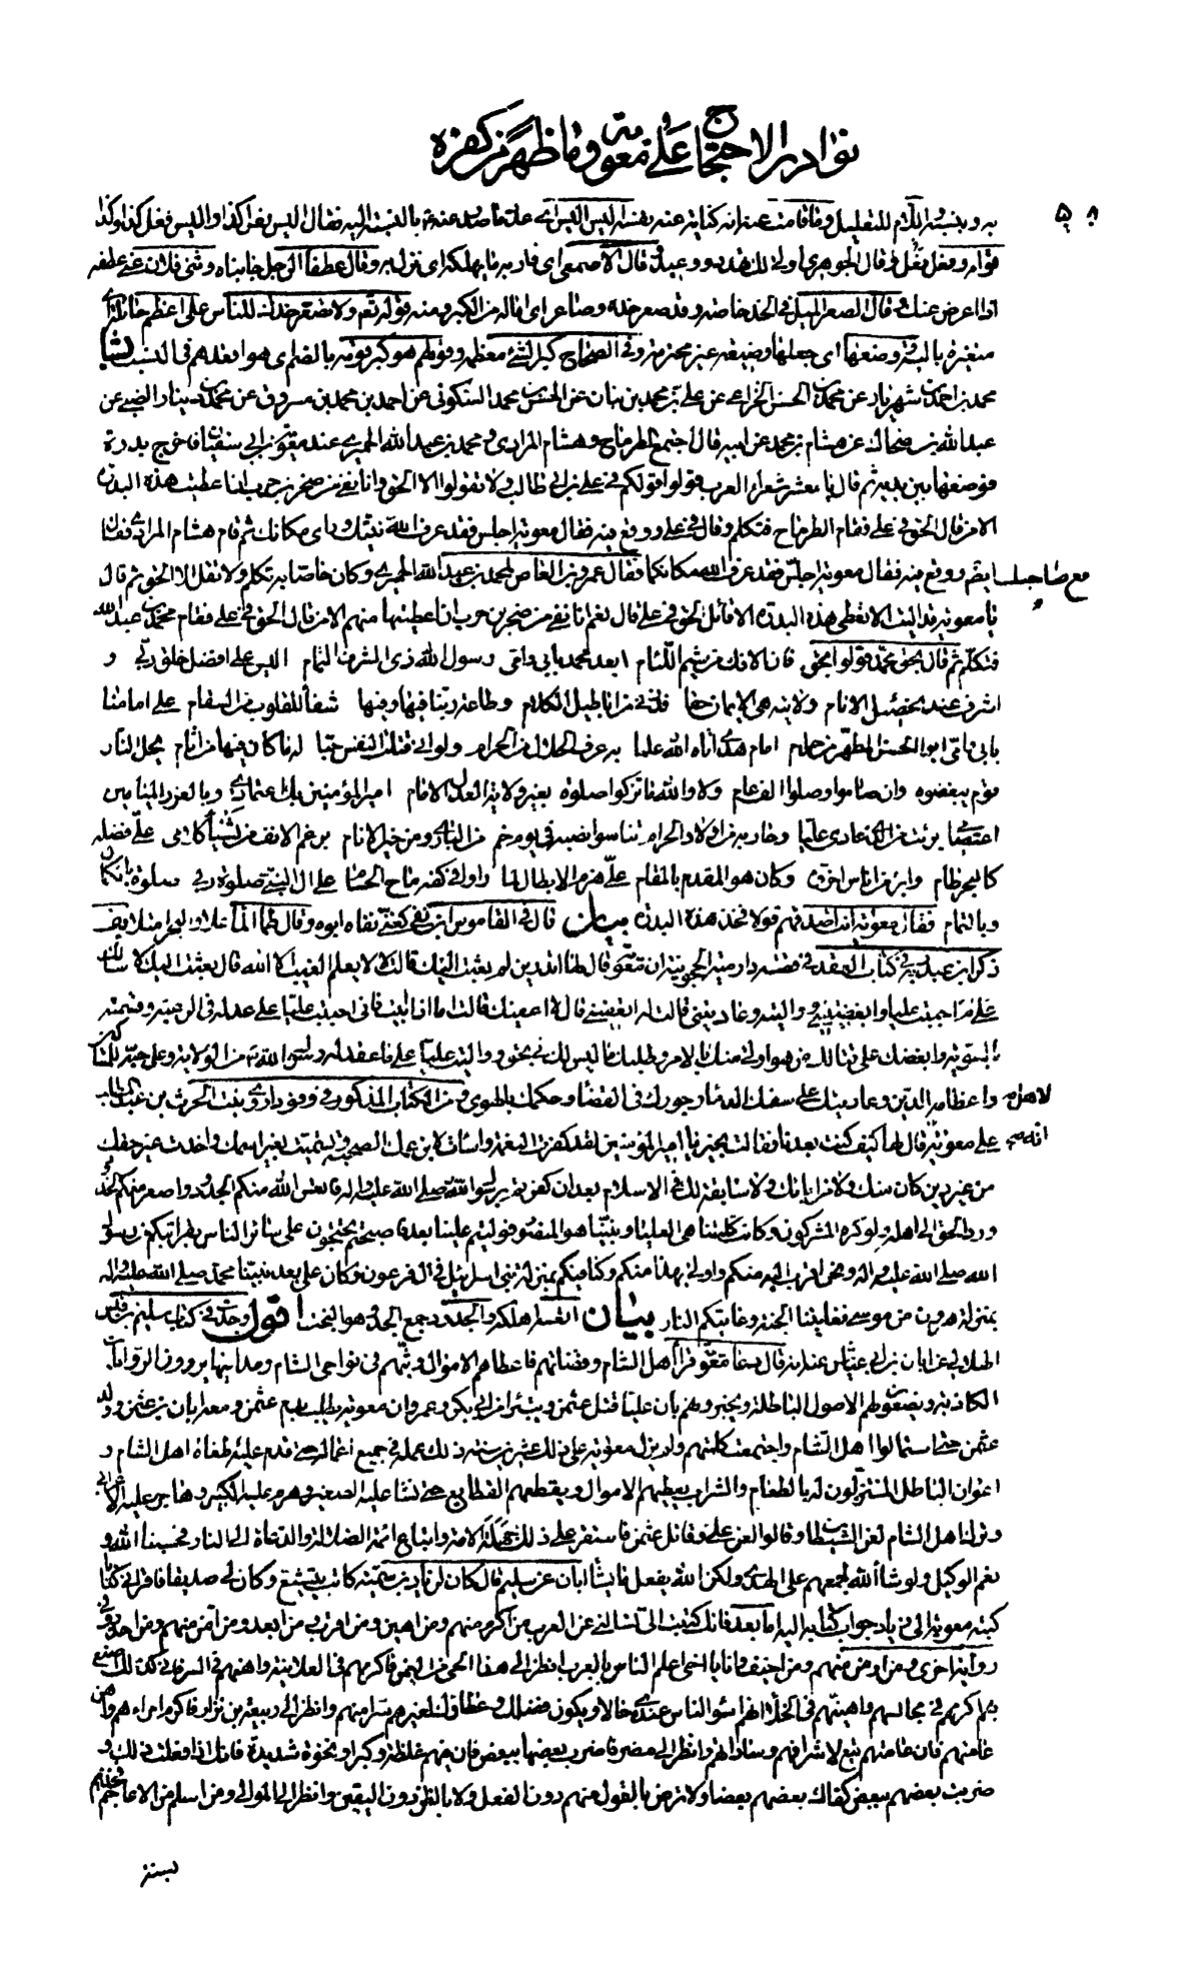 نوادر الاحتجاج على معوية وما ظهر من كفره
به و بفتحه اللام للتعليل وما قامت عنه انه كناية عنه بفتنه اليس اليس اى على قاصد عنه بالنسبة اليه فقال اليس يفعل كذا و اليس فعل كذا وكذا
قوله وقال الجوهرى اولى لك تهدد و وعيد قال الاصمعى اى قاربه ما يهلكه اى نزل به وقال عطفا الرجل جانباه وثنى فلان عنى عطفه
اذا اعرض عنك وقال الصعر الميل فى الخد خاصة وقد صعر خده وصاعر اى اماله من الكبر ومنه قوله تع ولا تصعر خدك للناس على اعظم
متغيره بالبشر وضعها اى جعلها وضيعة غير محترمة وفى الصحاح كبر الشئ معظمه وقولهم هو كبر قومه بالضم اى هو اقعدهم فى النسب بشا
محمد بن احمد بن شهريار عن محمد بن الحسن الخزاعى عن على بن محمد بن بنان عن الحسن بن محمد السكونى عن احمد بن محمد بن مسروق عن محمد بن دينار الضبى عن
عبد الله بن ضحاك عن هشام بن محمد عن ابيه قال اجتمع الطرماح و هشام المرادى و محمد بن عبد الله الحميرى عند معوية بن ابى سفيان فاخرج بدرة
فوضعها بين يديه ثم قال يا معشر شعراء العرب قولوا قولكم فى على بن ابى طالب ولا تقولوا الا الحق وانا نفى من صخر بن حرب ان اعطيت هذه البدرة
الا من قال الحق فى على فقام الطرماح فتكلم وقال فى على و وقع فيه فقال معوية اجلس فقد عرف الله نيتك و راى مكانك ثم قام هشام المرادى فقال
ايضا و وقع فيه فقال معوية اجلس مع صاحبك فقد عرف الله مكانكما فقال عمرو بن العاص لمحمد بن عبد الله الحميرى وكان خاصا به تكلم ولا تقل الا الحق ثم قال
يا معوية قد اليت الا تعطى هذه البدرة الا قائل الحق فى على قال نعم انا نفى من صخر بن حرب ان اعطيتها منهم الا من قال الحق فى على فقام محمد بن عبد الله
فتكلم ثم قال بحق محمد قولوا بحق فان الافك من شيم اللئام ابعد محمد بابى وامى رسول الله ذى الشرف التمام اليس على افضل خلق ربى و
اشرف عند تحصيل الانام ولايته هى الايمان حقا فذرنى من اباطيل الكلام وطاعة ربنا فيها وفيها شفاء للقلوب من السقام على امامنا
بابى وامى ابو الحسن المطهر من حرام امام هدى اتاه الله علما به عرف الحلال من الحرام ولو انى قتلت النفس حبا له ما كان فيها من اثام يحل النار
قوم يبغضوه وان صاموا وصلوا الف عام ولا والله ما تزكوا صلوة بغير ولاية العدل الامام امير المؤمنين بك اعتمادى وبالغر الميامين
اعتصامى برئت من الذى عادى عليا وحاربه من اولاد الحرام تناسوا نصبه فى يوم خم من البارى ومن خير الانام برغم الانف من يشنأ كلامى على فضله
كالبحر طام وابرء من اناس اخروه وكان هو المقدم بالمقام على هزم الابطال لما راوا فى كفه ماح الحسام على ال النبى صلوة ربى صلوة بالكمال
وبالتمام فقال معوية انت اصدقهم قولا فخذ هذه البدرة بيان قال فى القاموس ابن نفى كغنى نفاه ابوه وقال طما الماء علا والبحر امتلا يف
ذكر ابن عبد ربه فى كتاب العقد فى قصة دارمية الحجونية ان معوية قال لها اتدرين لم بعثت اليك قالت لا يعلم الغيب الا الله قال بعثت اليك لاسالك
على م احببت عليا وابغضتينى و واليته وعاديتنى قالت له اتعفينى قال لا اعفيك قالت اما اذا ابيت فانى احببت عليا على عدله فى الرعية وقسمته
بالسوية وابغضك على قتالك من هو اولى منك بالامر وطلبك ما ليس لك بحق و واليت عليا على ما عقد له رسول الله ص من الولاية وعلى حبه للمساكين
واعظامه لاهل الدين وعاديتك على سفك الدماء وجورك فى القضاء وحكمك بالهوى و من الكتاب المذكور فى وفود اروى بنت الحرث بن عبد المطلب
على معوية انه قال لها كيف كنت بعدنا فقالت بخير يا امير المؤمنين لقد كفرت النعمة واسات لابن عمك الصحبة وتسميت بغير اسمك واخذت غير حقك
من غير دين كان منك ولا من ابائك ولا سابقة لك فى الاسلام بعد ان كفرتم برسول الله صلى الله عليه واله فاتعس الله منكم الجدود واصعر منكم الخدود
ورد الحق الى اهله ولو كره المشركون وكانت كلمتنا هى العليا ونبينا هو المنصور فوليتم علينا بعده فاصبحتم تحتجون على سائر الناس بقرابتكم من رسول
الله صلى الله عليه واله ونحن اقرب اليه منكم واولى بهذا منكم وكنا فيكم بمنزلة بنى اسرائيل فى ال فرعون وكان على بعد نبينا محمد صلى الله عليه واله
بمنزلة هرون من موسى فغايتنا الجنة وغايتكم النار بيان اتعسه اهلكه والجدود جمع الجد وهو البخت اقول وجدت فى كتاب سليم بن قيس
الهلالى عن ابان بن ابى عياش عنه انه قال دعا معوية قراء اهل الشام وقضاتهم فاعطاهم الاموال وبثهم فى نواحى الشام ومدائنها يروون الروايات
الكاذبة ويضعون لهم الاصول الباطلة ويخبرونهم بان عليا قتل عثمن ويتبرء من ابى بكر وعمر وان معوية يطلب بدم عثمن ومعه ابان بن عثمن وولد
عثمن حتى استمالوا اهل الشام واجتمعت كلمتهم ولم يزل معوية على ذلك عشرين سنة ذلك عمله فى جميع اعماله حتى قدم عليه طغاة اهل الشام و
اعوان الباطل المنتزلون له بالطعام والشراب يعطيهم الاموال ويقطعهم القطايع حتى نشا عليه الصغير وهرم عليه الكبير وهاجر عليه الاعرابى
وترك اهل الشام لعن الشيطان وقالوا لعن على وقاتل عثمن فاستقر على ذلك جهلة الامة واتباع ائمة الضلالة والدعاة الى النار فحسبنا الله و
نعم الوكيل ولو شاء الله لجمعهم على الهدى ولكن الله يفعل ما يشاء ابان عن سليم قال كان لزياد بن سمية كاتب يتشيع وكان لى صديقا فاقرانى كتابا
كتبه معوية الى زياد جواب كتابه اليه اما بعد فانك كتبت الى تسالنى عن العرب من اكرم منهم ومن اهين ومن اقرب ومن ابعد ومن امن منهم ومن احذر وفى
رواية اخرى ومن اومن منهم ومن اخيف وانا يا اخى اعلم الناس بالعرب انظر الى هذا الحى من اليمن فاكرمهم فى العلانية واهنهم فى السر فانى كذلك اصنع
بهم اكرمهم فى مجالسهم واهينهم فى الخلاء انهم اسوء الناس عندى حالا ويكون فضلك وعطاؤك لغيرهم سرا منهم وانظر الى ربيعة بن نزار فاكرم امراءهم واهن
عامتهم فان عامتهم تبع لاشرافهم وساداتهم وانظر الى مضر فاضرب بعضها ببعض فان فيهم غلظة وكبرا ونخوة شديدة فانك اذا فعلت ذلك و
ضربت بعضهم ببعض كفاك بعضهم بعضا ولا ترض بالقول منهم دون الفعل ولا بالظن دون اليقين وانظر الى الموالى ومن اسلم من الاعاجم فخذهم
بسنة